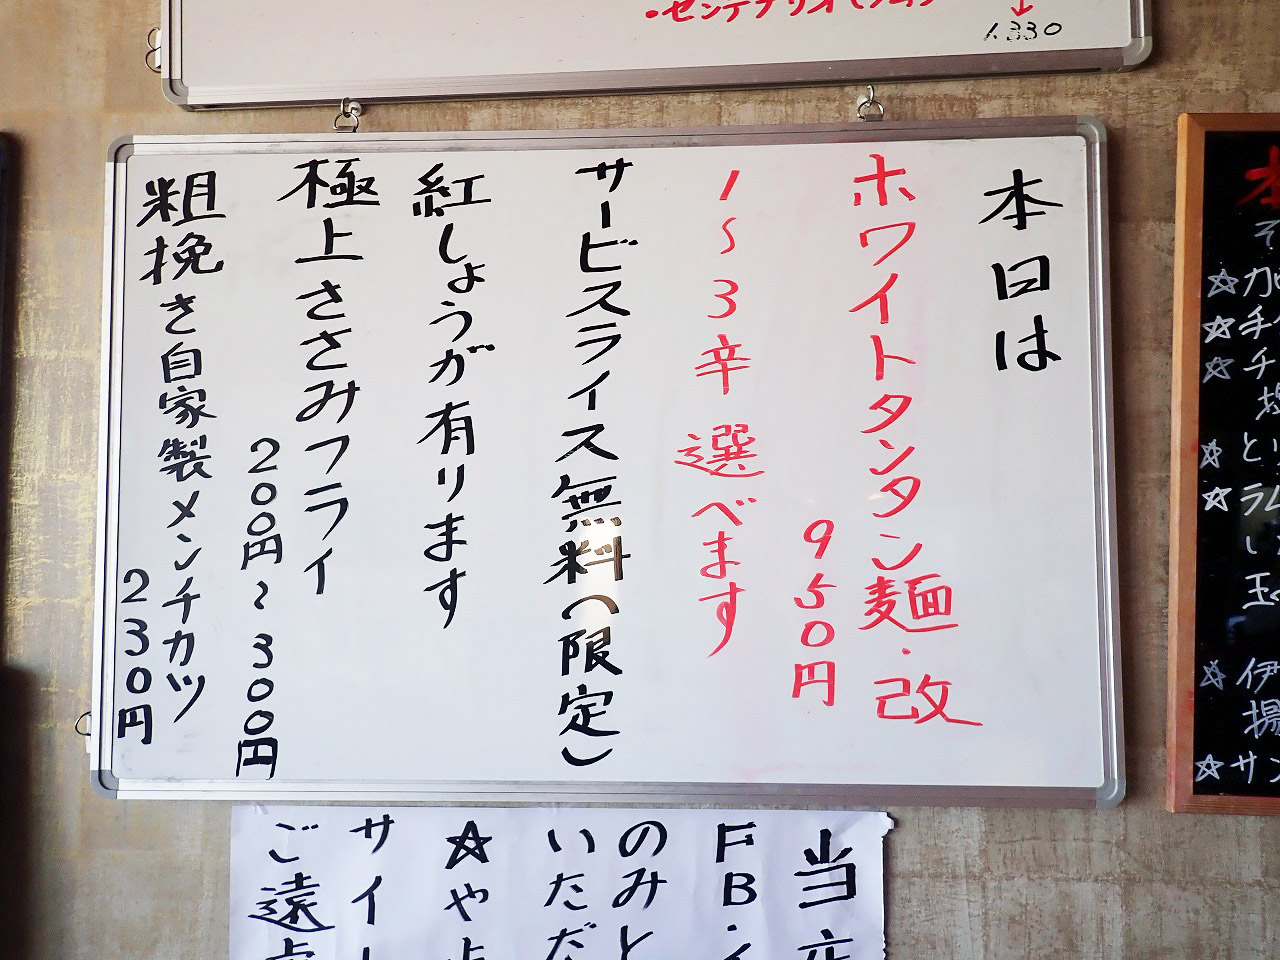 1330
本日は
ホワイトタンタン麺・改
950円
1〜3辛 選べます
サービスライス無料(限定)
紅しょうが有ります
極上ささみフライ
200円〜300円
粗挽き自家製メンチカツ
230円
当
FB・
のみと
いただ
☆や
サイ
ご遠
☆
☆
☆
☆とり
☆ラム
玉
☆伊
揚
☆サン